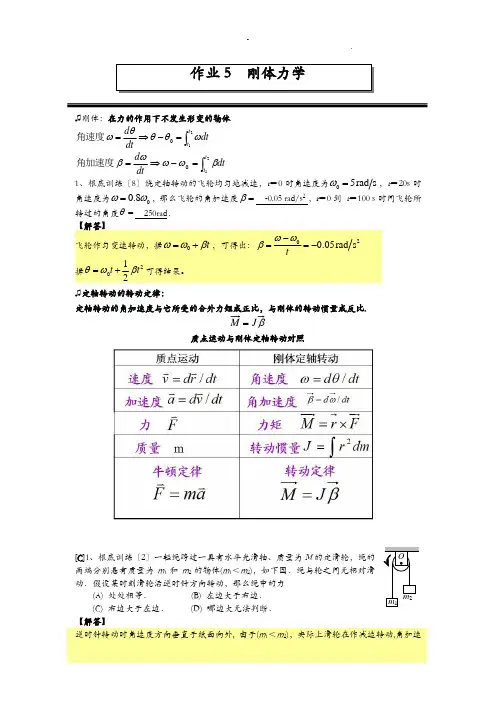 -
.
作业5 刚体力学
♫刚体：在力的作用下不发生形变的物体
角速度 ω = dθ/dt ⇒ θ − θ₀ = ∫_{t₁}^{t₂} ωdt
角加速度 β = dω/dt ⇒ ω − ω₀ = ∫_{t₁}^{t₂} βdt
1、根底训练〔8〕绕定轴转动的飞轮均匀地减速，t＝0 时角速度为ω₀ = 5 rad/s，t＝20s 时
角速度为ω = 0.8ω₀，那么飞轮的角加速度β = -0.05 rad/s²，t＝0 到 t＝100 s 时间飞轮所
转过的角度θ = 250rad．
【解答】
飞轮作匀变速转动，据ω = ω₀ + βt，可得出：β = (ω − ω₀)/t = −0.05 rad/s²
据θ = ω₀t + ½βt²可得结果。
♫定轴转动的转动定律：
定轴转动的角加速度与它所受的合外力矩成正比，与刚体的转动惯量成反比.
M = Jβ
质点运动与刚体定轴转动对照
质点运动 刚体定轴转动
速度 v = dr/dt 角速度 ω = dθ/dt
加速度 a = dv/dt 角加速度 β = dω/dt
力 F 力矩 M = r × F
质量 m 转动惯量 J = ∫ r²dm
牛顿定律 转动定律
F = ma M = Jβ
[C]1、根底训练〔2〕一轻绳跨过一具有水平光滑轴、质量为 M 的定滑轮，绳的
两端分别悬有质量为 m₁ 和 m₂ 的物体(m₁＜m₂)，如下图．绳与轮之间无相对滑
动．假设某时刻滑轮沿逆时针方向转动，那么绳中的力
(A) 处处相等． (B) 左边大于右边．
(C) 右边大于左边． (D) 哪边大无法判断．
O
m₂
m₁
【解答】
逆时针转动时角速度方向垂直于纸面向外, 由于(m₁＜m₂)，实际上滑轮在作减速转动,角加速